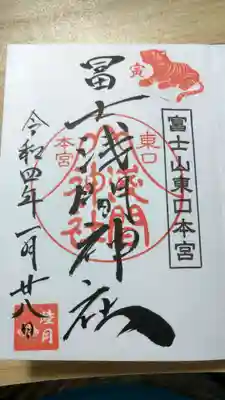 寅
富士山東口本宮
冨士浅間神社
東口
本宮
浅間
神社
令和四年一月廿八日
睦月